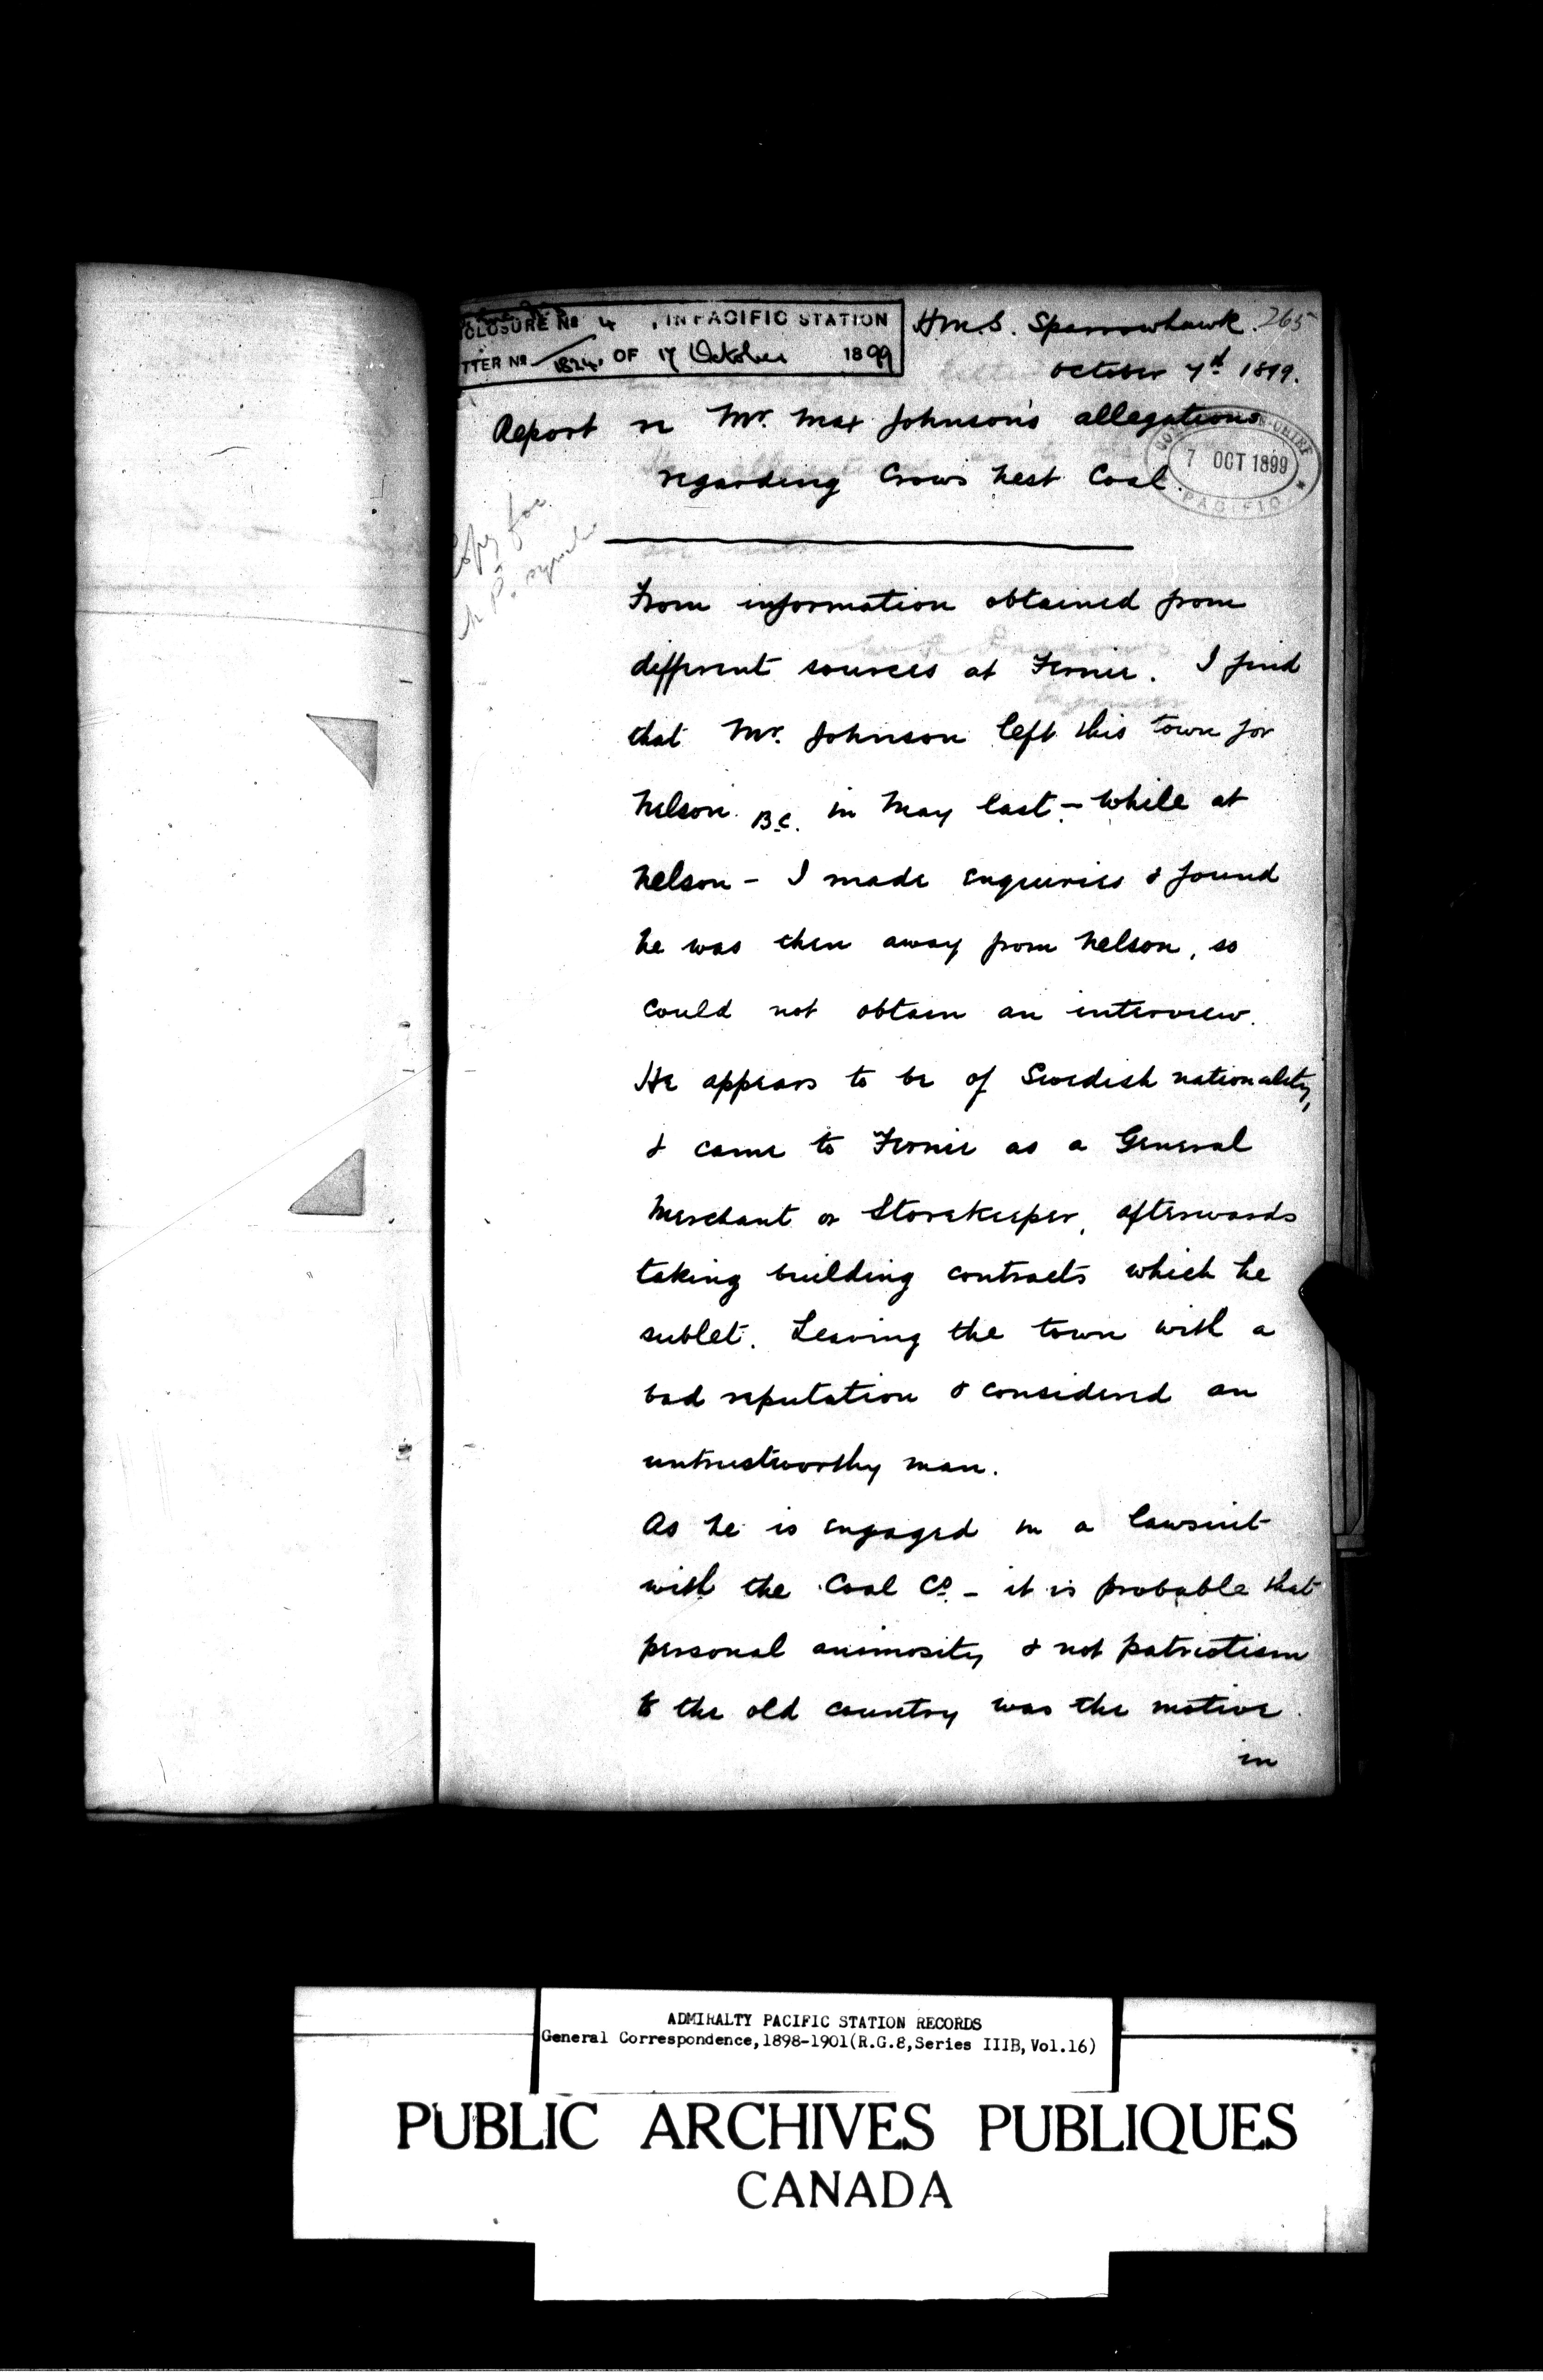 CLOSURE No 4, IN PACIFIC STATION
TTER No 1824. OF 17 October 1899
H.M.S. Sparrowhawk. 265
October 7th 1899.
Report re Mr. Max Johnson's allegations
regarding Crows Nest Coal.
7 OCT 1899
PACIFIC
Copy for
From information obtained from
different sources at Fernie. I find
that Mr. Johnson left this town for
Nelson B.C. in May last. - While at
Nelson - I made enquiries & found
he was then away from Nelson, so
could not obtain an interview.
He appears to be of Swedish nationality,
& came to Fernie as a General
Merchant or Storekeeper, afterwards
taking building contracts which he
sublet. Leaving the town with a
bad reputation & considered an
untrustworthy man.
As he is engaged in a lawsuit
with the Coal Co. - it is probable that
personal animosity & not patriotism
to the old country was the motive
in
ADMIRALTY PACIFIC STATION RECORDS
General Correspondence,1898-1901(R.G.8,Series IIIB,Vol.16)
PUBLIC ARCHIVES PUBLIQUES
CANADA